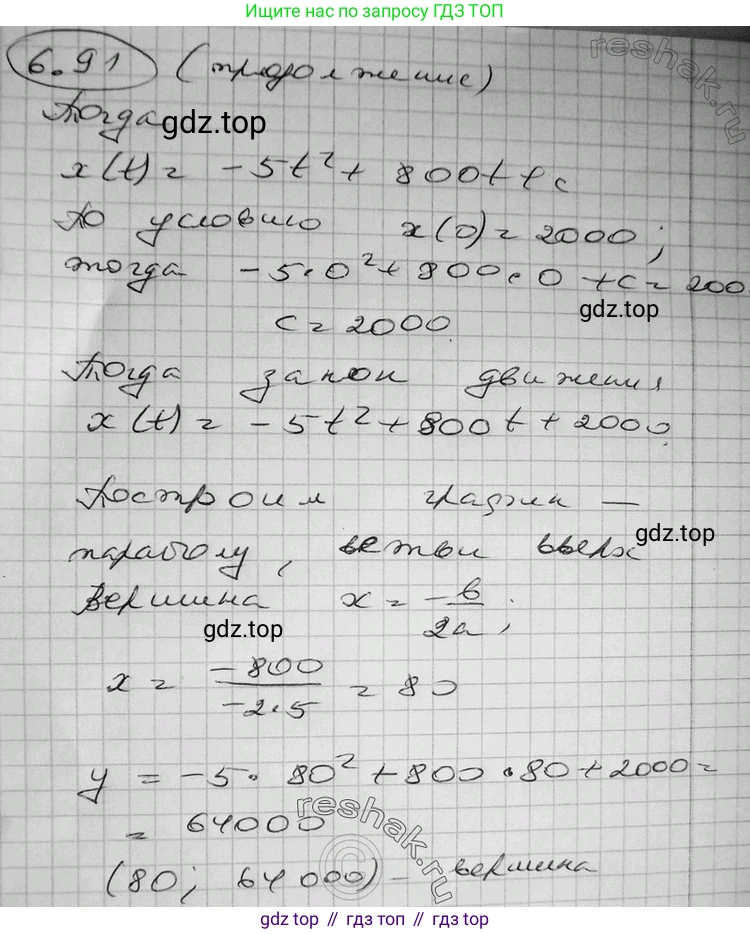 Ищите нас по запросу ГДЗ ТОП
6.91 (продолжение)
reshak.ru
Тогда
gdz.top
x(t) = -5t² + 800t + c
По условию x(0) = 2000;
тогда -5·0² + 800·0 + c = 200
gdz.top
c = 2000.
Тогда закон движения
x(t) = -5t² + 800t + 2000.
Построим график —
gdz.top
параболу, ветви вверх
Вершина x = -b/2a;
gdz.top
x = -800/-2·5 = 80
y = -5·80² + 800·80 + 2000 =
= 64000
reshak.ru
©
(80; 64000) - вершина
gdz top // гдз топ // gdz top